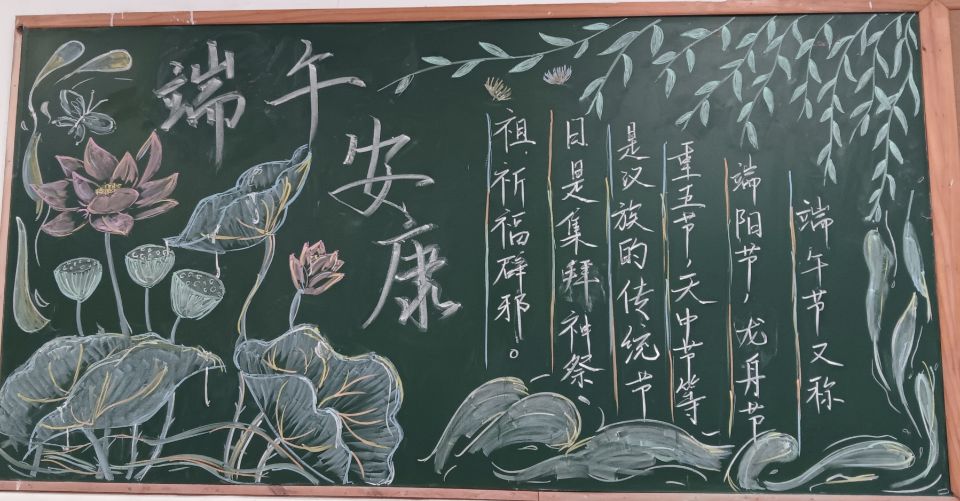 端午
安
康
端午节又称
端阳节,龙舟节
重五节,天中节等
是汉族的传统节
日是集拜神祭
祖、祈福辟邪。